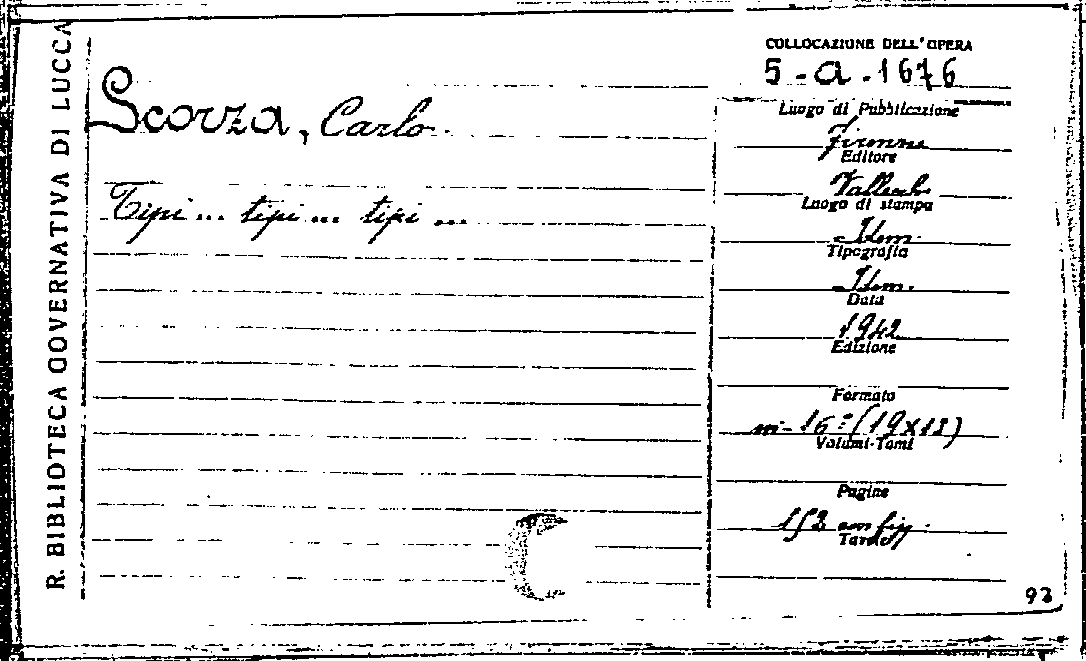 R. BIBLIOTECA GOVERNATIVA DI LUCCA
Scorza, Carlo
Tipi ... tipi ... tipi ...
COLLOCAZIONE DELL'OPERA
5-a-1676
Luogo di Pubblicazione
Firenze
Editore
Vallecchi
Luogo di stampa
Idem.
Tipografia
Idem.
Data
1942
Edizione
Formato
in-16º (19x12)
Volumi-Tomi
Pagine
152 con fig.
Tavole
92